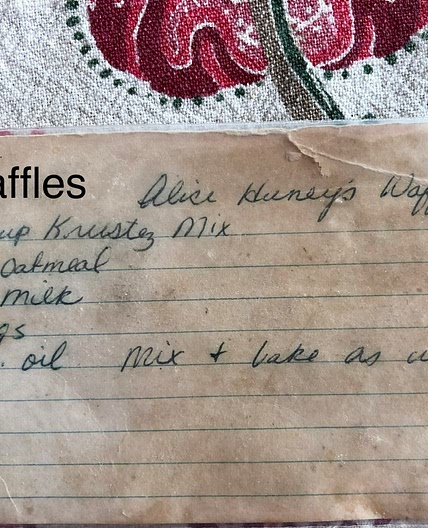 affles
Alice Huney's Waf
up Krustez Mix
Oatmeal
Milk
gs
. oil Mix + bake as u